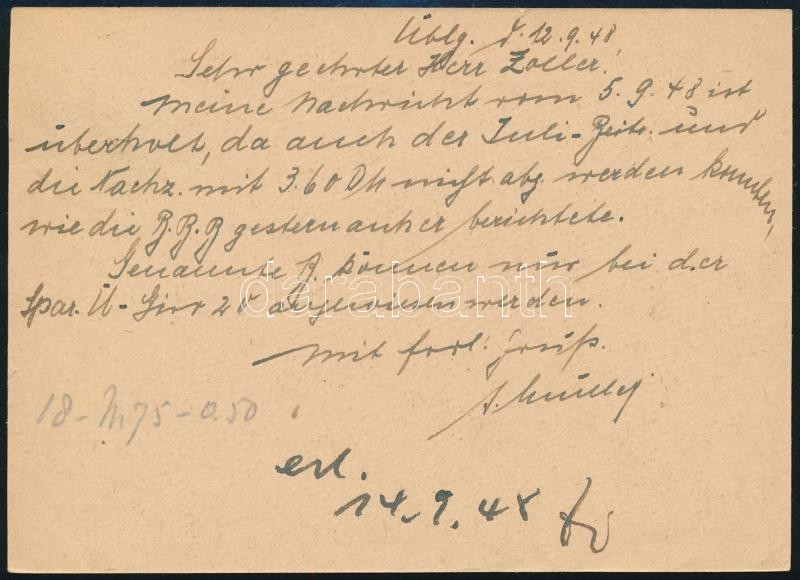 Üblg. d. 12.9.48
Sehr geehrter Herr Zoller!
Meine Nachricht vom 5.9.48 ist
überholt, da auch der Juli-Beitr. und
die Nachz. mit 3.60 DM nicht abg. werden konnten,
wie die gestern anher berichtete.
Genannte B. können nur bei der
Spar. Ü-Giro 28 angewiesen werden.
Mit frdl. Gruß.
A. Müller
18-M75-0.50
erl.
14.9.48
darabanth